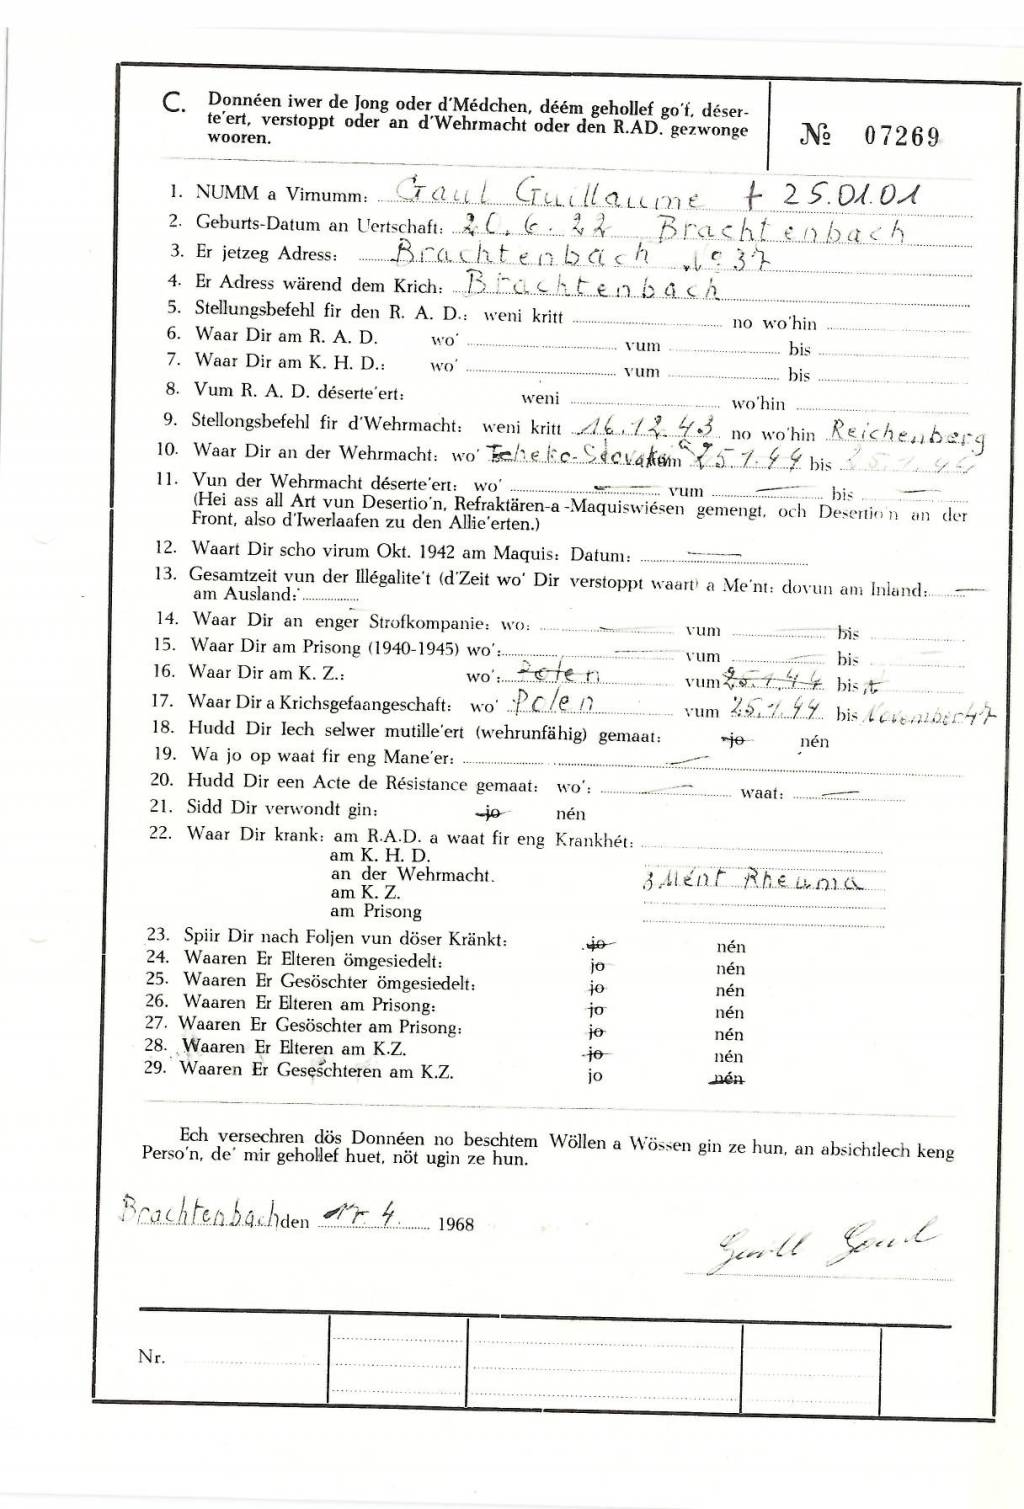 C. Donnéen iwer de Jong oder d'Médchen, déém gehollef go'f, déser-
te'ert, verstoppt oder an d'Wehrmacht oder den R.AD. gezwonge
wooren.
№ 07269
1. NUMM a Virnumm: Gaul Guillaume † 25.01.01
2. Geburts-Datum an Uertschaft: 20.6.22 Brachtenbach
3. Er jetzeg Adress: Brachtenbach No 37
4. Er Adress wärend dem Krich: Brachtenbach
5. Stellungsbefehl fir den R. A. D.: weni kritt no wo'hin
6. Waar Dir am R. A. D. wo' vum bis
7. Waar Dir am K. H. D.: wo' vum bis
8. Vum R. A. D. déserte'ert: weni wo'hin
9. Stellongsbefehl fir d'Wehrmacht: weni kritt 16.12.43 no wo'hin Reichenberg
10. Waar Dir an der Wehrmacht: wo' vum 25.1.44 bis 25.1.44
11. Vun der Wehrmacht déserte'ert: wo' — vum — bis —
(Hei ass all Art vun Desertio'n, Refraktären-a-Maquiswiésen gemengt, och Desertio'n an der
Front, also d'Iwerlaafen zu den Allie'erten.)
12. Waart Dir scho virum Okt. 1942 am Maquis: Datum: —
13. Gesamtzeit vun der Illégalite't (d'Zeit wo' Dir verstoppt waart) a Me'nt: dovun am Inland: —
am Ausland:
14. Waar Dir an enger Strofkompanie: wo: — vum — bis
15. Waar Dir am Prisong (1940-1945) wo': — vum — bis
16. Waar Dir am K. Z.: wo': Polen vum 25.1.44 bis
17. Waar Dir a Krichsgefaangeschaft: wo' Polen vum 25.1.44 bis November 47
18. Hudd Dir Iech selwer mutille'ert (wehrunfähig) gemaat: jo nén
19. Wa jo op waat fir eng Mane'er: —
20. Hudd Dir een Acte de Résistance gemaat: wo': — waat: —
21. Sidd Dir verwondt gin: jo nén
22. Waar Dir krank: am R.A.D. a waat fir eng Krankhét:
am K. H. D.
an der Wehrmacht. 3 Mént Rheuma
am K. Z.
am Prisong
23. Spiir Dir nach Foljen vun döser Kränkt: jo nén
24. Waaren Er Elteren ömgesiedelt: jo nén
25. Waaren Er Gesöschter ömgesiedelt: jo nén
26. Waaren Er Elteren am Prisong: jo nén
27. Waaren Er Gesöschter am Prisong: jo nén
28. Waaren Er Elteren am K.Z. jo nén
29. Waaren Er Geseschteren am K.Z. jo nén
Ech versechren dös Donnéen no beschtem Wöllen a Wössen gin ze hun, an absichtlech keng
Perso'n, de' mir gehollef huet, nöt ugin ze hun.
Brachtenbach den 4. 1968
Guill Gaul
Nr.